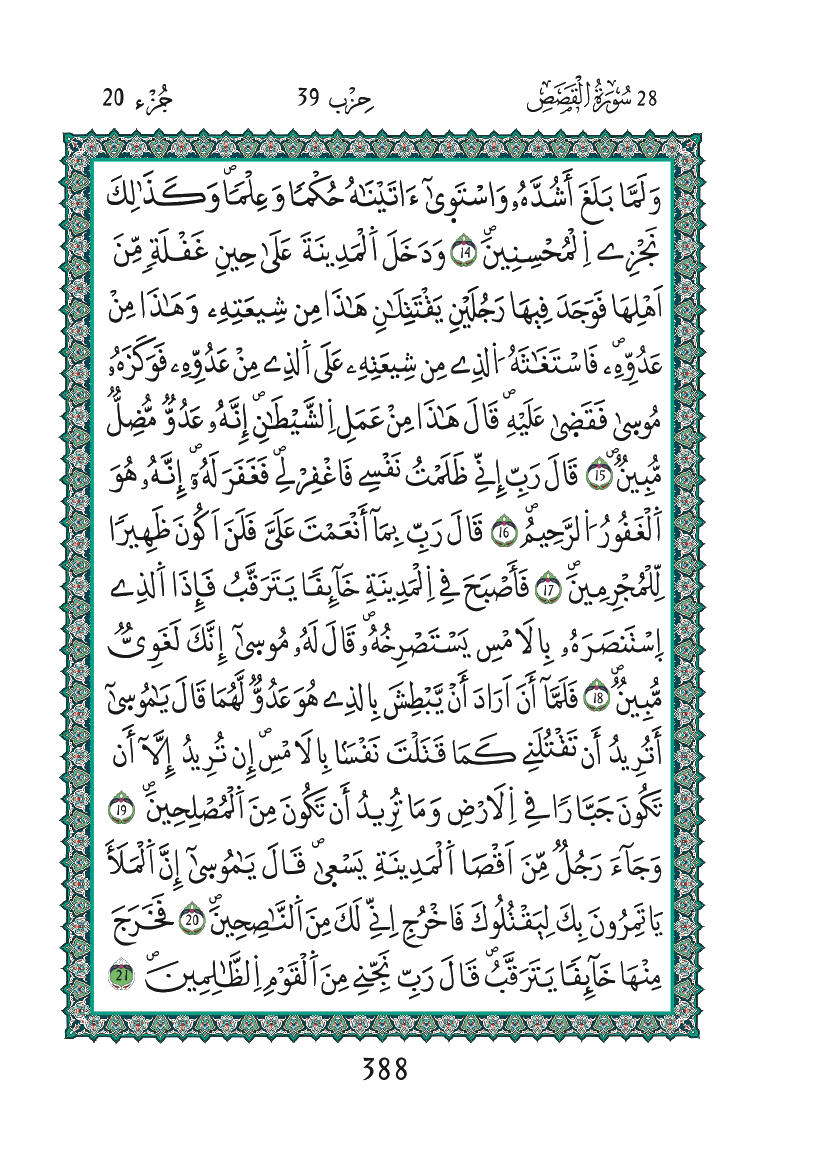 28 سُورَةُ الْقَصَصِ حِزْب 39 جُزْء 20
وَلَمَّا بَلَغَ أَشُدَّهُۥ وَاسْتَوِىٰٓ ءَاتَيْنَٰهُ حُكْمًا وَعِلْمًاۖ وَكَذَٰلِكَ
نَجْزِے اِ۬لْمُحْسِنِينَۖ 14 وَدَخَلَ اَ۬لْمَدِينَةَ عَلَىٰ حِينِ غَفْلَةٖ مِّنَ
اَهْلِهَا فَوَجَدَ فِيهَا رَجُلَيْنِ يَقْتَتِلَٰنِ هَٰذَا مِن شِيعَتِهِۦ وَهَٰذَا مِنْ
عَدُوِّهِۦۖ فَاسْتَغَٰثَهُ اُ۬لذِے مِن شِيعَتِهِۦ عَلَى اَ۬لذِے مِنْ عَدُوِّهِۦ فَوَكَزَهُۥ
مُوسِىٰ فَقَضِىٰ عَلَيْهِۖ قَالَ هَٰذَا مِنْ عَمَلِ اِ۬لشَّيْطَٰنِۖ إِنَّهُۥ عَدُوّٞ مُّضِلّٞ
مُّبِينٞۖ 15 قَالَ رَبِّ إِنِّے ظَلَمْتُ نَفْسِے فَاغْفِرْ لِےۖ فَغَفَرَ لَهُۥٓۖ إِنَّهُۥ هُوَ
اَ۬لْغَفُورُ اُ۬لرَّحِيمُۖ 16 قَالَ رَبِّ بِمَآ أَنْعَمْتَ عَلَيَّ فَلَنَ اَكُونَ ظَهِيرًا
لِّلْمُجْرِمِينَۖ 17 فَأَصْبَحَ فِے اِ۬لْمَدِينَةِ خَآئِفًا يَتَرَقَّبُ فَإِذَا اَ۬لذِے
اِ۪سْتَنصَرَهُۥ بِالَامْسِ يَسْتَصْرِخُهُۥۖ قَالَ لَهُۥ مُوسِىٰٓ إِنَّكَ لَغَوِيّٞ
مُّبِينٞۖ 18 فَلَمَّآ أَنَ اَرَادَ أَنْ يَّبْطِشَ بِالذِے هُوَ عَدُوّٞ لَّهُمَا قَالَ يَٰمُوسِىٰٓ
أَتُرِيدُ أَن تَقْتُلَنِے كَمَا قَتَلْتَ نَفْسًا بِالَامْسِۖ إِن تُرِيدُ إِلَّآ أَن
تَكُونَ جَبَّارًا فِے اِ۬لَارْضِ وَمَا تُرِيدُ أَن تَكُونَ مِنَ اَ۬لْمُصْلِحِينَۖ 19
وَجَآءَ رَجُلٞ مِّنَ اَقْصَا اَ۬لْمَدِينَةِ يَسْعِىٰۖ قَالَ يَٰمُوسِىٰٓ إِنَّ اَ۬لْمَلَأَ
يَاتَمِرُونَ بِكَ لِيَقْتُلُوكَ فَاخْرُجِ اِنِّے لَكَ مِنَ اَ۬لنَّٰصِحِينَۖ 20 فَخَرَجَ
مِنْهَا خَآئِفًا يَتَرَقَّبُۖ قَالَ رَبِّ نَجِّنِے مِنَ اَ۬لْقَوْمِ اِ۬لظَّٰلِمِينَۖ 21
388